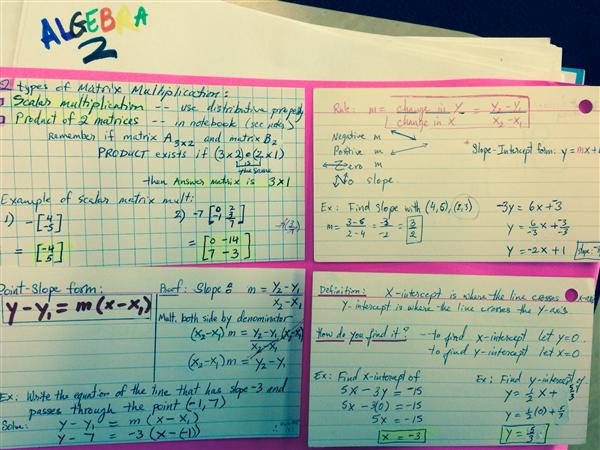 ALGEBRA
2
2 types of Matrix Multiplication:
Scalar multiplication -- use distributive property
Product of 2 matrices -- in notebook (see notes)
Remember if matrix A3x2 and matrix B2
PRODUCT exists if (3x2)•(2x1)
the same
then Answer matrix is 3x1
Example of scalar matrix mult:
1) -[4 -5]
= [-4 5]
2) -7 [0 2 -1 3/7]
= [0 -14 7 -3]
Rule: m = change in y / change in x = y2-y1 / x2-x1
Negative m
Positive m
Zero m
No slope
Ex: Find slope with (4,6), (2,3)
m = 3-6 / 2-4 = -3/-2 = 3/2
Slope-Intercept form: y = mx+
-3y = 6x + -3
y = 6/-3 x + -3/-3
y = -2x + 1
Point-Slope form:
y-y1 = m(x-x1)
Proof: Slope m = y2-y1 / x2-x1
Mult. both side by denominator
(x2-x1)m = y2-y1 / x2-x1 (x2-x1)
(x2-x1)m = y2-y1
Ex: Write the equation of the line that has slope -3 and
passes through the point (-1,7)
Soln: y-y1 = m(x-x1)
y-7 = -3(x-(-1))
Definition: X-intercept is where the line crosses
Y-intercept is where the line crosses the Y-axis
How do you find it? --to find x-intercept let y=0.
to find y-intercept let x=0
Ex: Find x-intercept of
5x-3y = -15
5x-3(0) = -15
5x = -15
x = -3
Ex: Find y-intercept of
y = 1/2 x + 5/3
y = 1/2 (0) + 5/3
y = 5/3